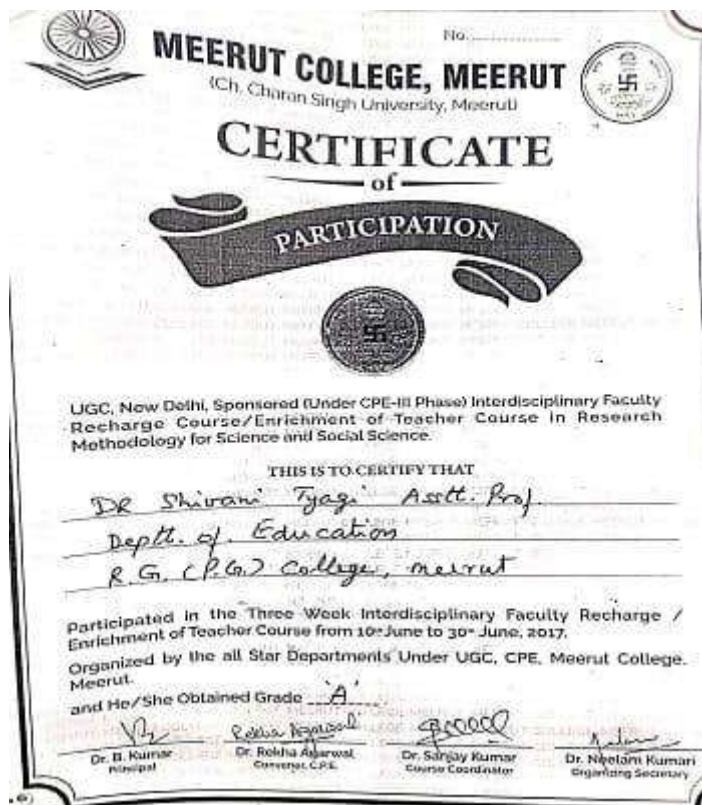 No..............
MEERUT COLLEGE, MEERUT
(Ch. Charan Singh University, Meerut)
CERTIFICATE
of
PARTICIPATION
UGC, New Delhi, Sponsored (Under CPE-III Phase) Interdisciplinary Faculty
Recharge Course/Enrichment of Teacher Course in Research
Methodology for Science and Social Science.
THIS IS TO CERTIFY THAT
DR Shivani Tyagi Asstt. Prof.
Deptt. of Education
R.G. (P.G.) College, meerut
Participated in the Three Week Interdisciplinary Faculty Recharge /
Enrichment of Teacher Course from 10th June to 30th June, 2017.
Organized by the all Star Departments Under UGC, CPE, Meerut College,
Meerut.
and He/She Obtained Grade 'A'
Rekha Agarwal
Dr. B. Kumar
Principal
Dr. Rekha Agarwal
Convener, C.P.E.
Dr. Sanjay Kumar
Course Coordinator
Dr. Neelam Kumari
Organizing Secretary